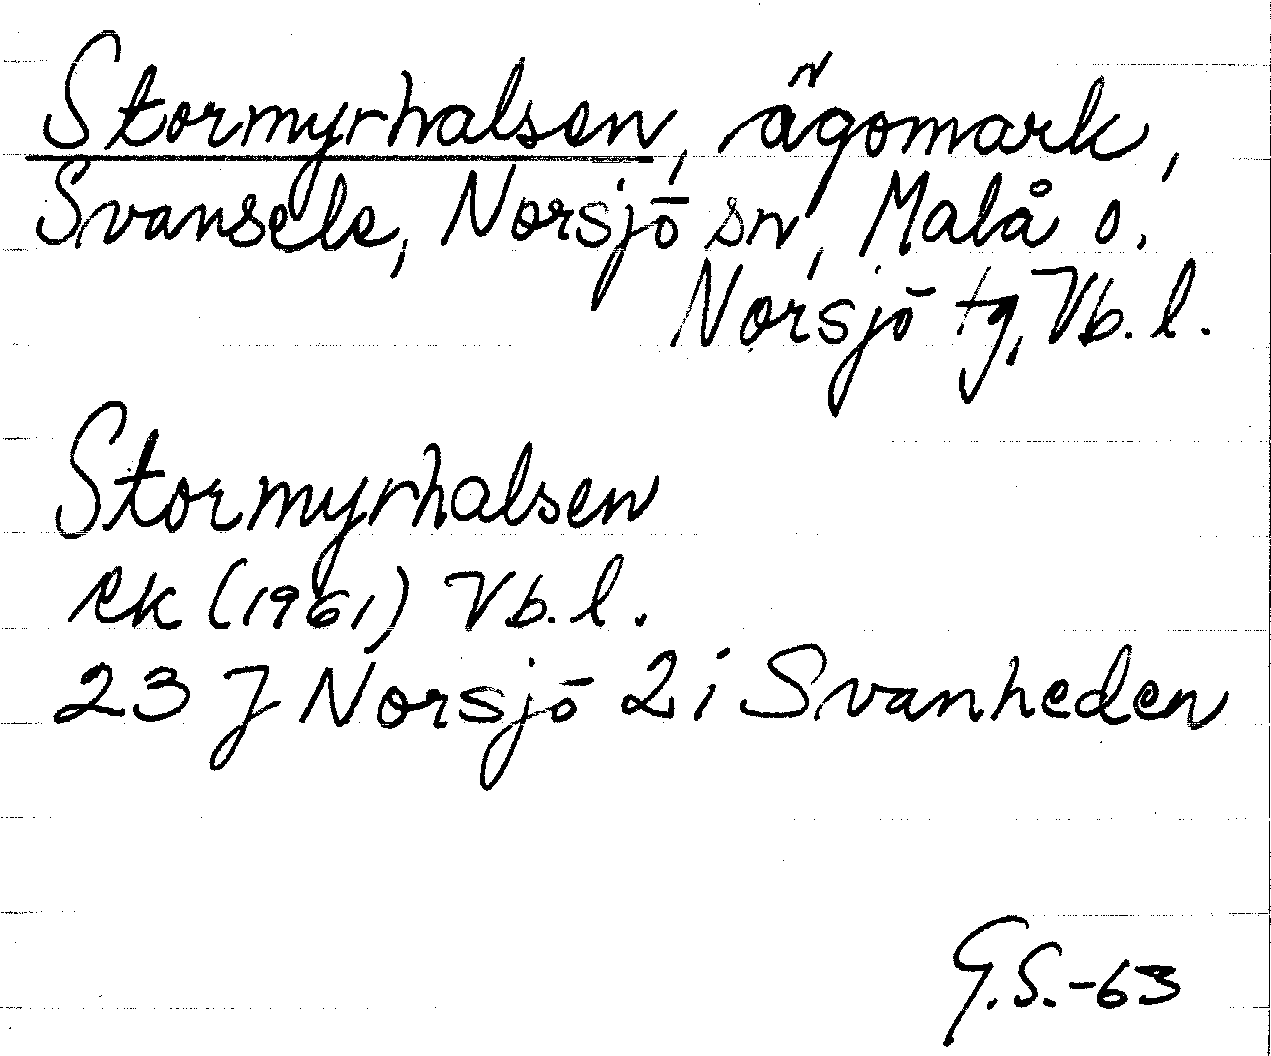 Stormyrhalsen, ägomark,
Svansele, Norsjö sn, Malå o.
Norsjö tg, Vb. l.
Stormyrhalsen
ek (1961) Vb. l.
23 J Norsjö 2 i Svanheden
G.S.-63